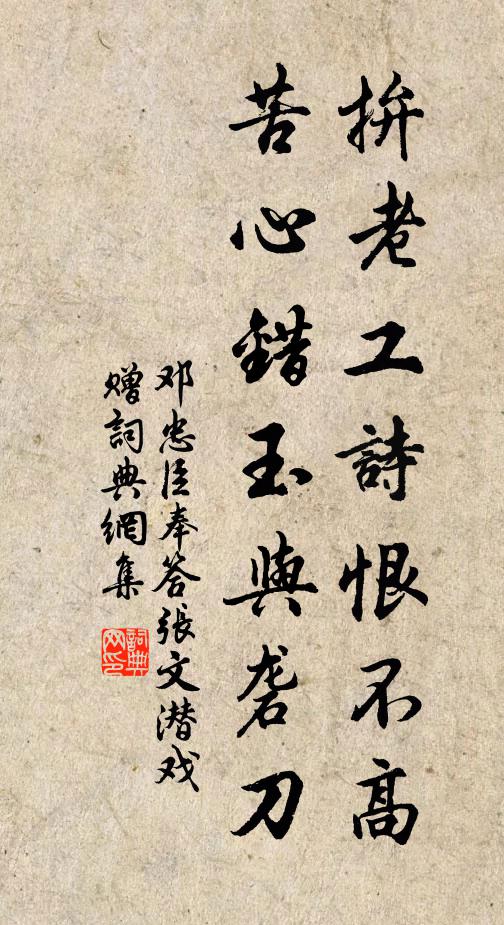 拚老工詩恨不高
苦心錯玉與砻刀
邓忠臣奉答張文潜戏
赠詞典網集
詞典网印